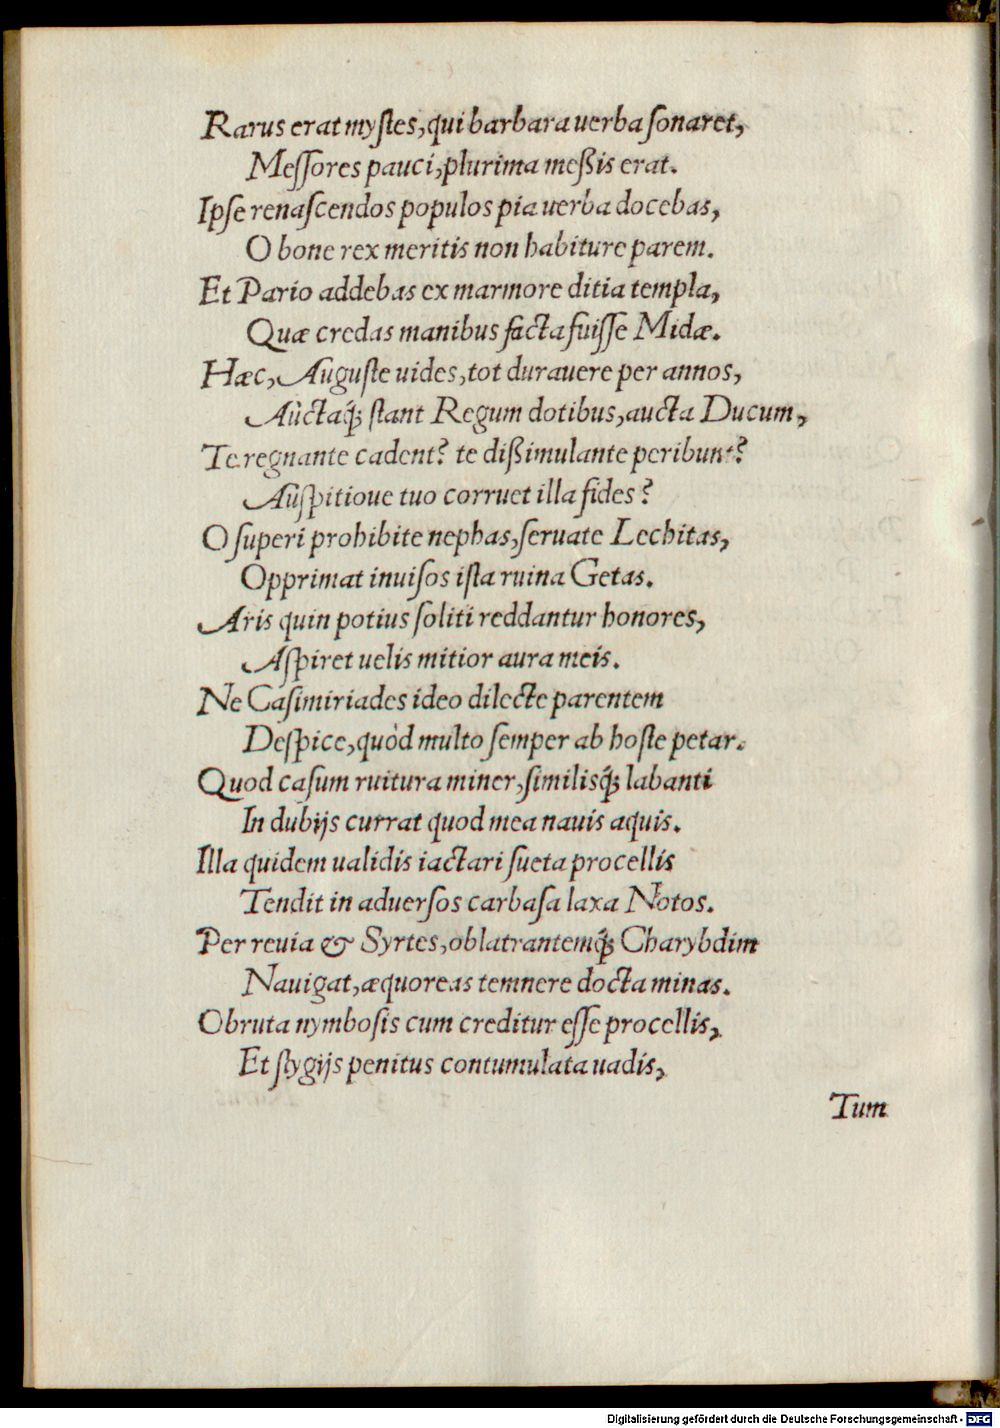 Rarus erat myſtes, qui barbara uerba ſonaret,
Meſſores pauci, plurima meßis erat.
Ipſe renaſcendos populos pia uerba docebas,
O bone rex meritis non habiture parem.
Et Pario addebas ex marmore ditia templa,
Quæ credas manibus facta fuiſſe Midæ.
Hæc, Auguſte uides, tot durauere per annos,
Auctaq́; ſtant Regum dotibus, aucta Ducum,
Te regnante cadent? te dißimulante peribunt?
Auſpitioue tuo corruet illa fides?
O ſuperi prohibite nephas, ſeruate Lechitas,
Opprimat inuiſos iſta ruina Getas.
Aris quin potius ſoliti reddantur honores,
Aſpiret uelis mitior aura meis.
Ne Caſimiriades ideo dilecte parentem
Deſpice, quòd multo ſemper ab hoſte petar.
Quod caſum ruitura miner, ſimilisq́; labanti
In dubijs currat quod mea nauis aquis.
Illa quidem ualidis iactari ſueta procellis
Tendit in aduerſos carbaſa laxa Notos.
Per reuia & Syrtes, oblatrantemq́; Charybdim
Nauigat, æquoreas temnere docta minas.
Obruta nymboſis cum creditur eſſe procellis,
Et ſtygijs penitus contumulata uadis,
Tum
Digitalisierung gefördert durch die Deutsche Forschungsgemeinschaft - DFG